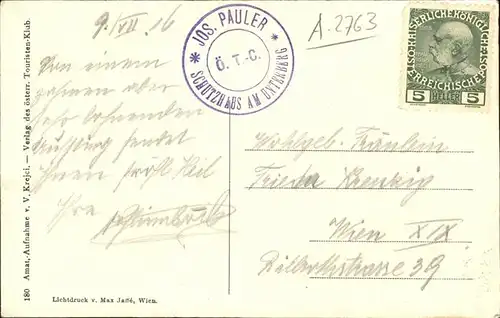 9./VII. 16
JOS. PAULER
Ö. T.-C.
* SCHUTZHAUS AM UNTERBERG *
A.2763
KAISERLICHE KÖNIGLICHE
ÖSTERREICHISCHE POST
5 HELLER 5
Von einem
aber
sehr lohnenden
Ausflug sendet
Ihnen Heil
Ihre
Wohlgeb. Fräulein
Frieda
Wien XIX
Billrothstrasse 39
180 Amat. Aufnahme v. V. Krejci. — Verlag des österr. Touristen-Klub.
Lichtdruck v. Max Jaffé, Wien.